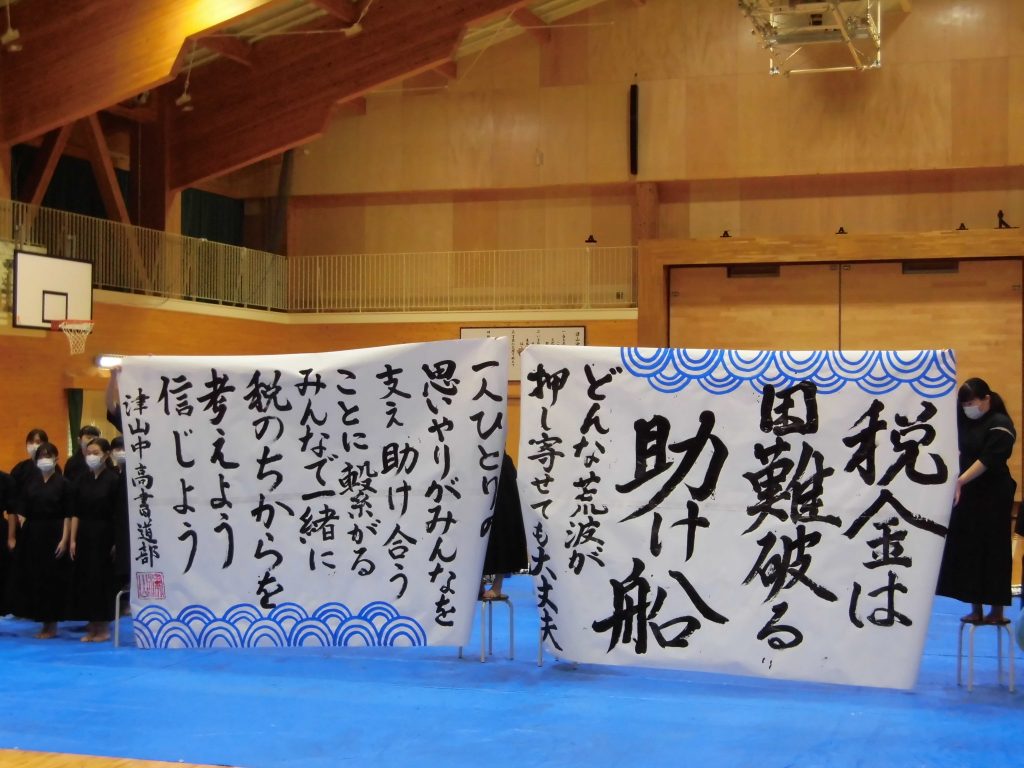 税金は
困難破る
助け船
どんな荒波が
押し寄せても大丈夫
一人ひとりの
思いやりがみんなを
支え助け合う
ことに繋がる
みんなで一緒に
税のちからを
考えよう
信じよう
津山中高書道部